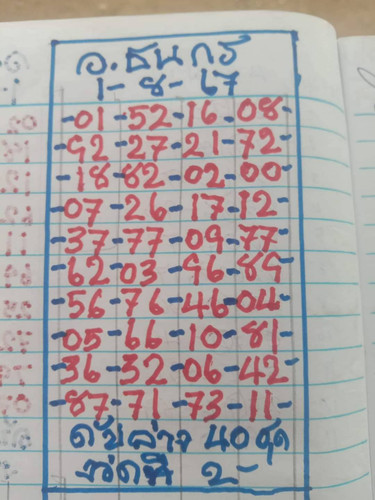 อ.ธนกร
1-8-67
-01-52-16-08-
-92-27-21-72-
-18-82-02-00-
-07-26-17-12-
-37-77-09-77-
-62-03-96-89-
-56-76-46-04-
-05-66-10-81-
-36-32-06-42-
-87-71-73-11-
ดับล่าง 40 ชุด
ชุดที่ 2-